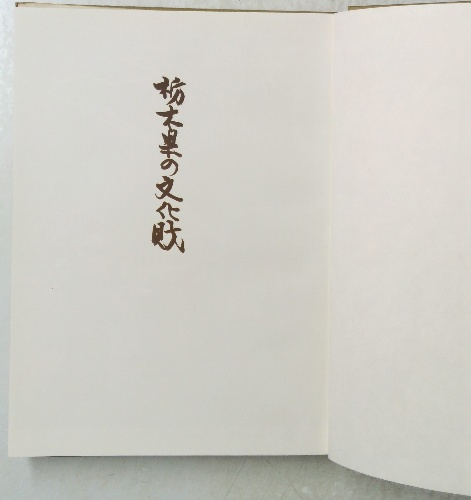 栃木県の文化財